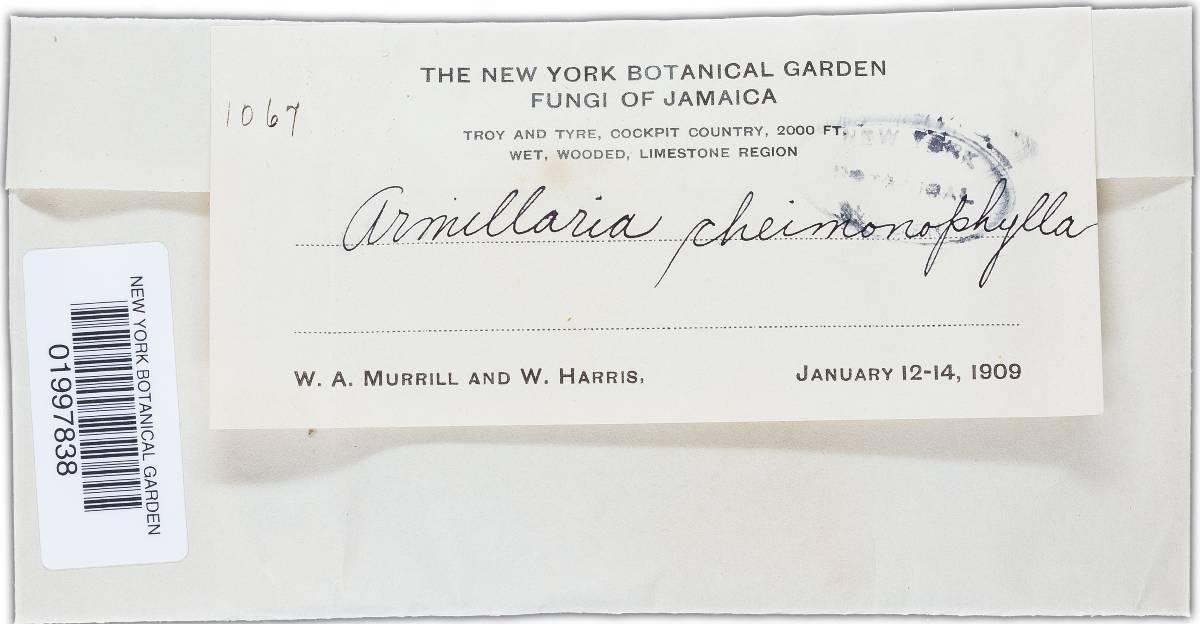 THE NEW YORK BOTANICAL GARDEN
FUNGI OF JAMAICA
1067
TROY AND TYRE, COCKPIT COUNTRY, 2000 FT.
WET, WOODED, LIMESTONE REGION
NEW YORK
BOTANICAL
Armillaria cheimonophylla
W. A. MURRILL AND W. HARRIS,
JANUARY 12-14, 1909
NEW YORK BOTANICAL GARDEN
01997838